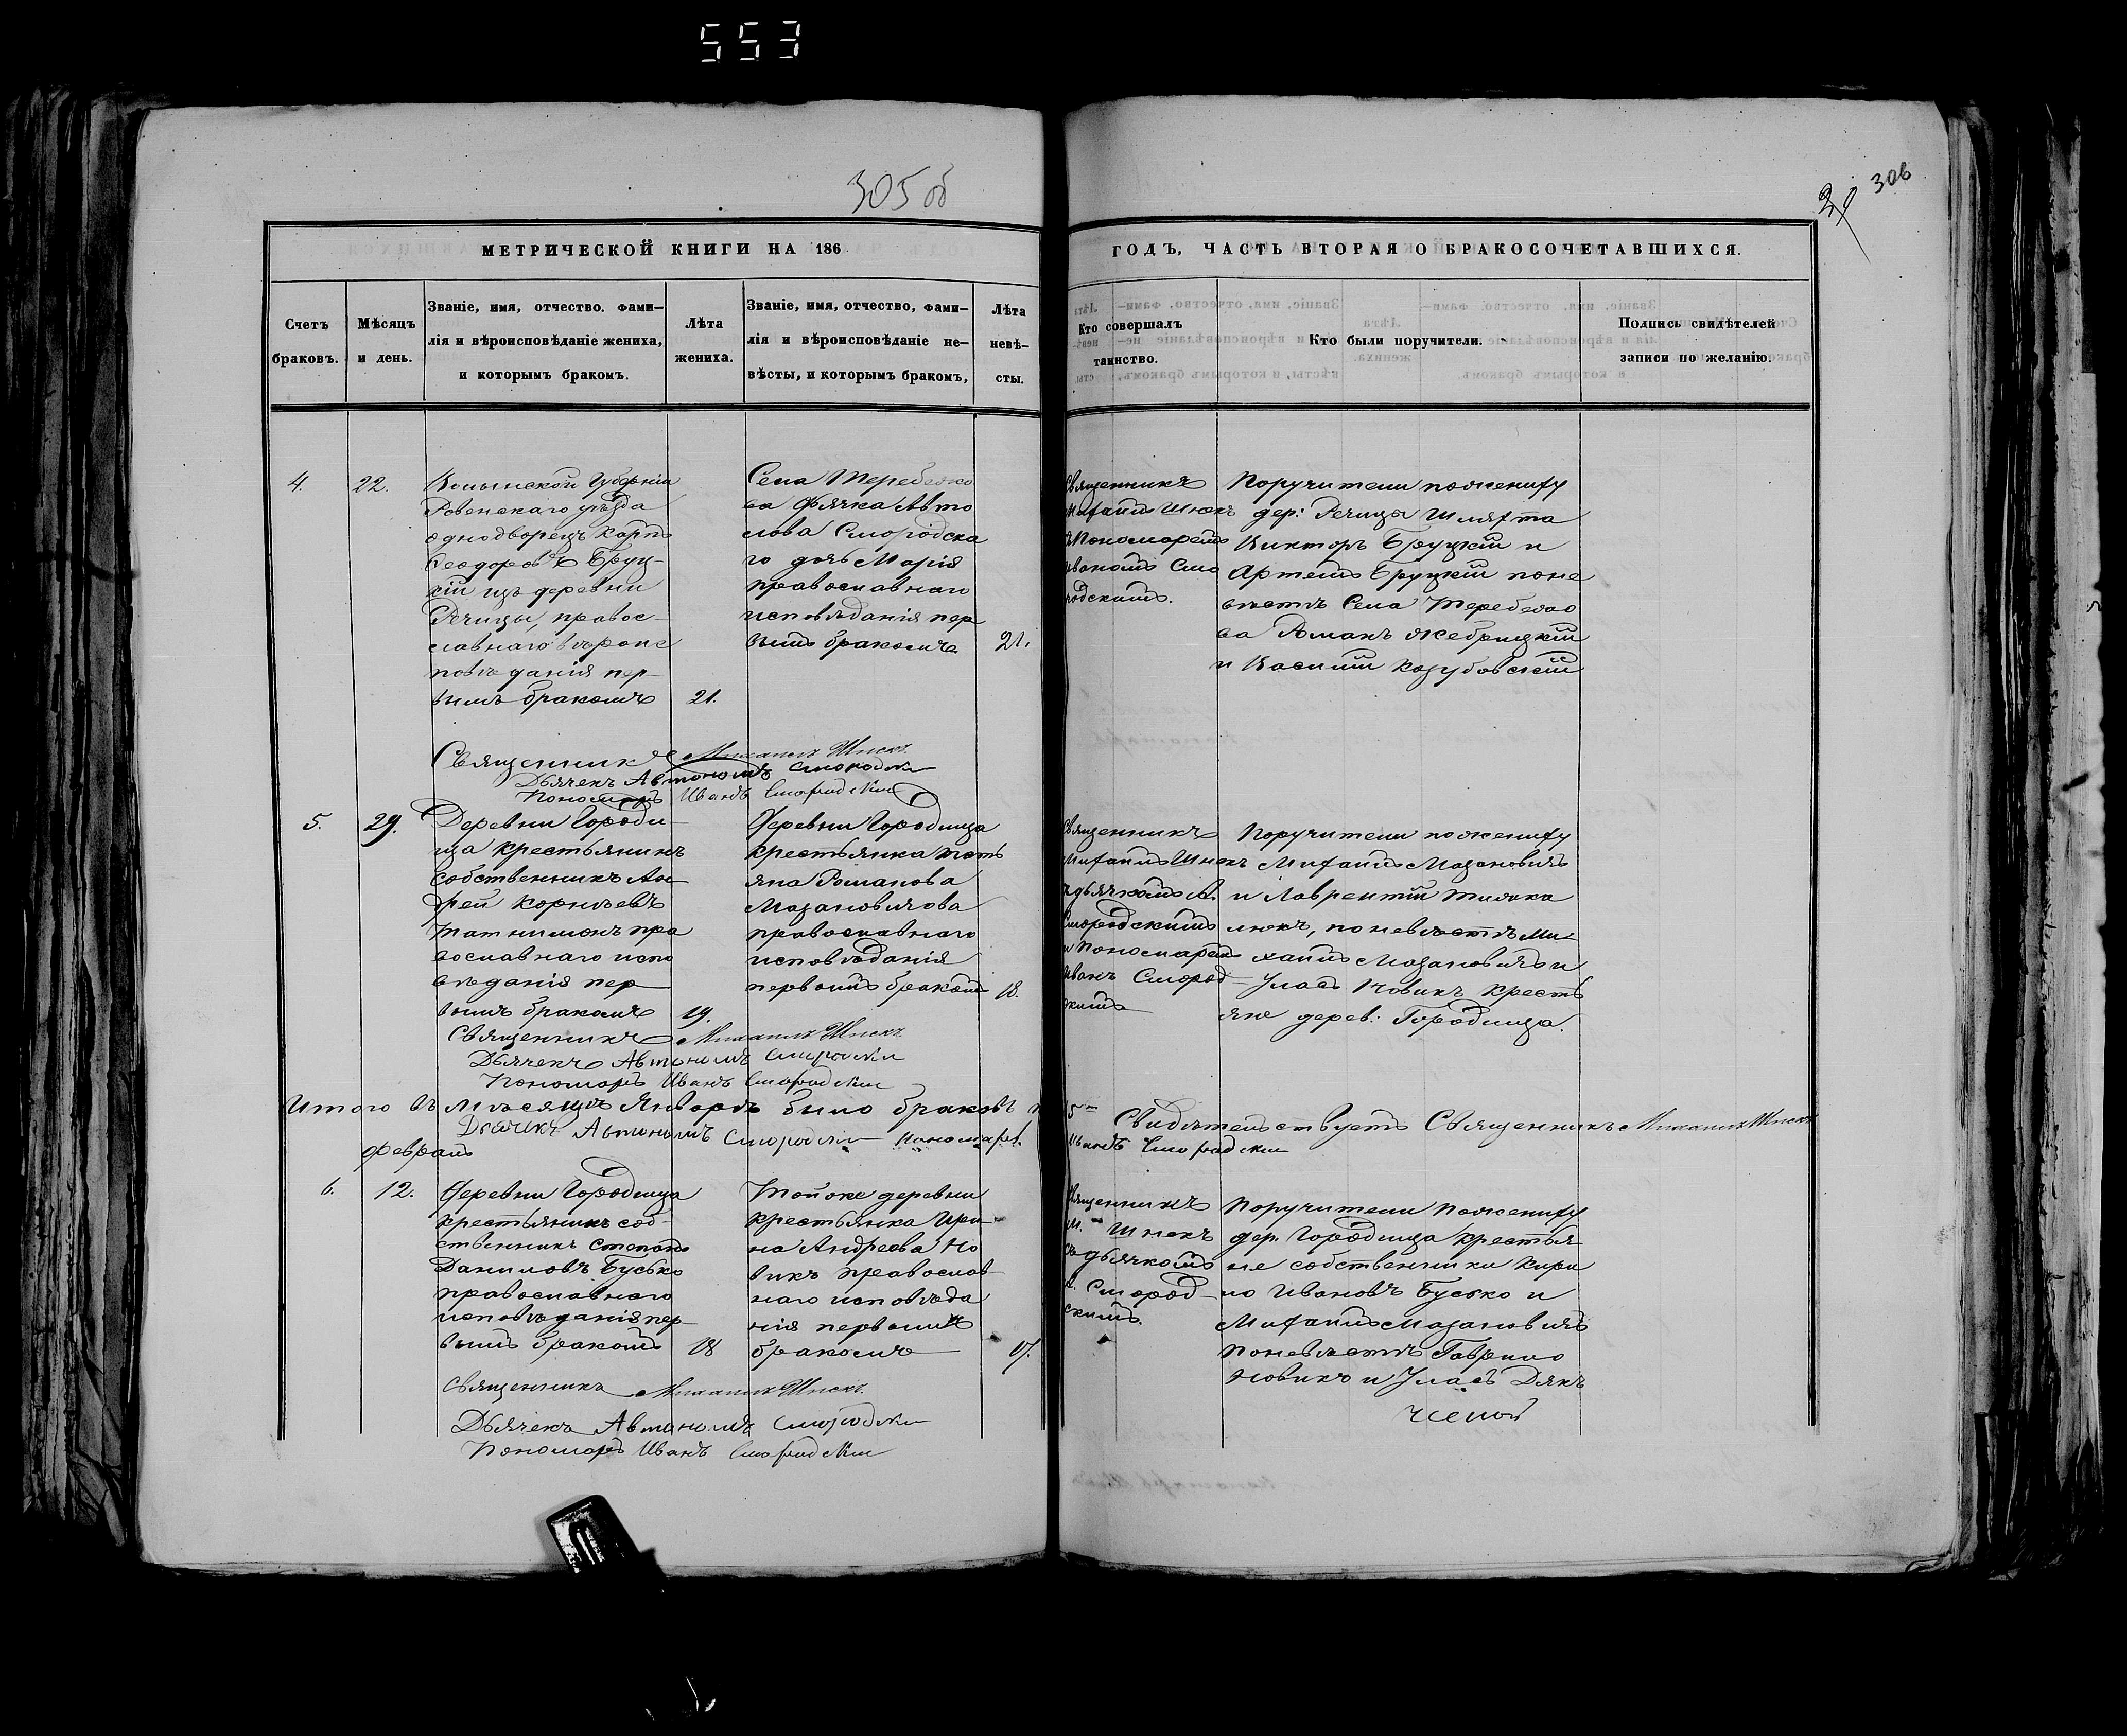 553
305 об
306
МЕТРИЧЕСКОЙ КНИГИ НА 186
ГОДЪ, ЧАСТЬ ВТОРАЯ О БРАКОСОЧЕТАВШИХСЯ.
Счетъ
браковъ.
Мѣсяцъ
и день.
Званіе, имя, отчество. фами-
лія и вѣроисповѣданіе жениха,
и которымъ бракомъ.
Лѣта
жениха.
Званіе, имя, отчество, фами-
лія и вѣроисповѣданіе не-
вѣсты, и которымъ бракомъ,
Лѣта
невѣ-
сты.
Кто совершалъ
таинство.
Кто были поручители.
Подпись свидѣтелей
записи по желанію.
4.
22.
Волынской Губерніи
Ровенскаго уѣзда
однодворецъ Карпъ
Ѳеодоровъ Бруц-
кій изъ деревни
Речицы, правос-
славнаго вѣроис
повѣданія пер-
вымъ бракомъ
21.
Села Теребежо
ва Дячка Авто
мова Смородска
го дочь Марія
православнаго
исповѣданія пер
вымъ бракомъ
21.
Священникъ
Михаилъ Шнекъ
Пономоремъ
Иваномъ Смо
родскимъ.
Поручители по жениху
дер: Речицы Шляхта
Викторъ Бруцкій и
Артемъ Бруцкій по не
вѣстѣ Села Теребежо
ва Романъ Жебрицкій
и Василій Козубовскій
Священникъ Михаилъ Шнекъ
Дьячекъ Автономъ Смородски
Пономарь Иванъ Смородский
5.
29.
Деревни Городи-
ща Крестьянинъ
Собственникъ Ан-
дрей Корнѣевъ
пра
вославнаго испо
вѣданія пер
вымъ бракомъ
19.
Деревни Городища
Крестьянка Тать
яна Романова
Мазановичова
православнаго
исповѣданія
первымъ бракомъ
18.
Священникъ
Михаилъ Шнекъ
дьячкомъ А.
Смородскимъ
и Пономаремъ
Иванъ Смород-
скимъ
Поручители по жениху
Михаилъ Мазановичъ
и Лаврентій
люкъ, по невѣстѣ Ми-
хаилъ Мазановичъ и
Уласъ Новикъ Кресть
яне дерев: Городища.
Священникъ Михаилъ Шнекъ
Дьячекъ Автономъ Смородски
Пономарь Иванъ Смородский
Итого въ мѣсяцѣ Январѣ было браковъ 5
Свидѣтельствуетъ Священникъ Михаилъ Шнекъ
Дьячекъ Автономъ Смородски Пономарь
Иванъ Смородский
Февраль
6.
12.
Деревни Городища
Крестьянинъ соб-
ственникъ Степанъ
Даниловъ Бусько
православнаго
исповѣданія пер-
вымъ бракомъ
18
Той же деревни
Крестьянка Ири-
на Андреева Но
викъ православ-
наго исповѣда
нія первымъ
бракомъ
17.
Священникъ
М. Шнекъ
съ дьячкомъ
А. Смород-
скимъ.
Поручители по жениху
дер. Городища Крестья
не собственники Кири
ло Ивановъ Бусько и
Михаилъ Мазановичъ
по невѣстѣ Гаврило
Новикъ и Уласъ
Священникъ Михаилъ Шнекъ
Дьячекъ Автономъ Смородски
Пономарь Иванъ Смородский